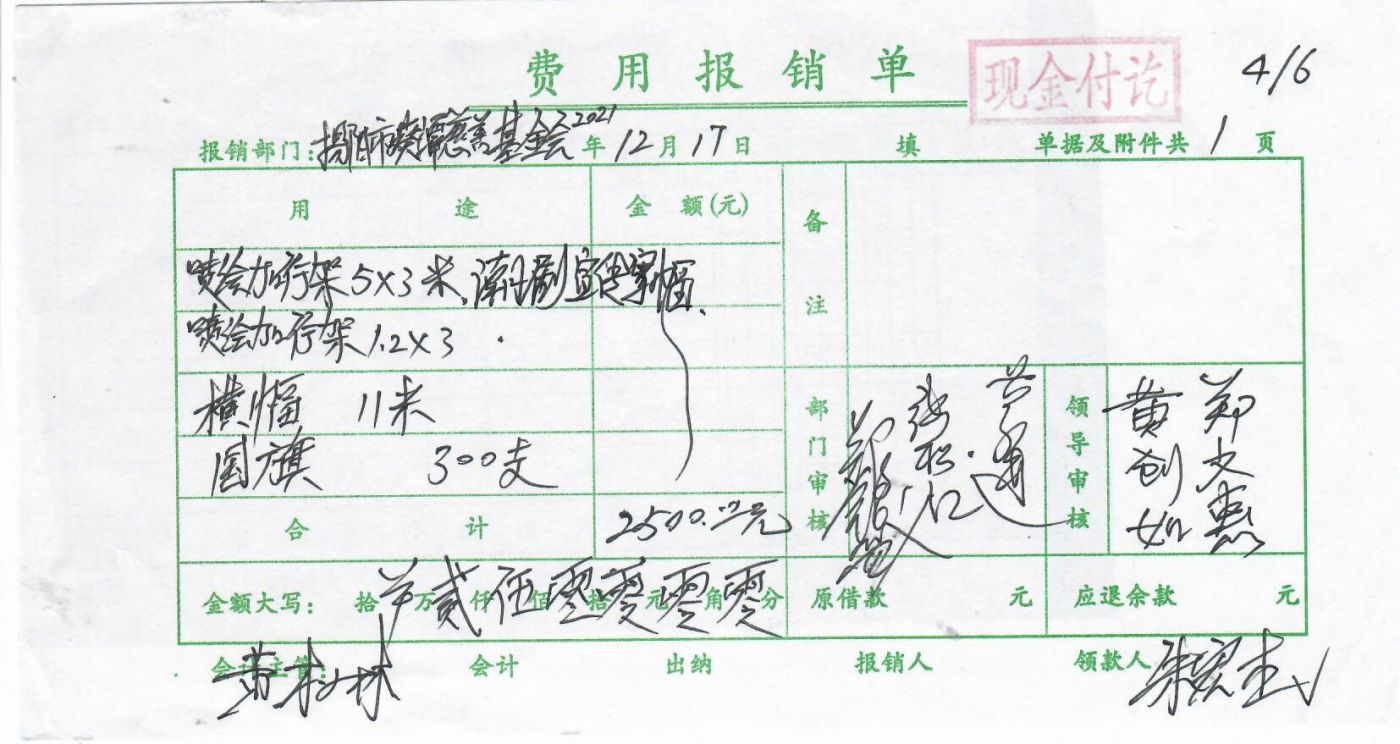 费用报销单
现金付讫
4/6
报销部门：揭阳市 慈善基金会 2021年12月17日 填 单据及附件共1页
用途 金额(元) 备注
喷绘加行架5×3米、潮剧宣传 幅、
喷绘加行架1.2×3
横幅 11米
国旗 300支
部门审核
领导审核 黄创如 郑文燕
合计 2500.00元
金额大写： 拾 万贰仟伍佰零拾零元零角零分 原借款 元 应退余款 元
会计主管： 会计 出纳 报销人 领款人